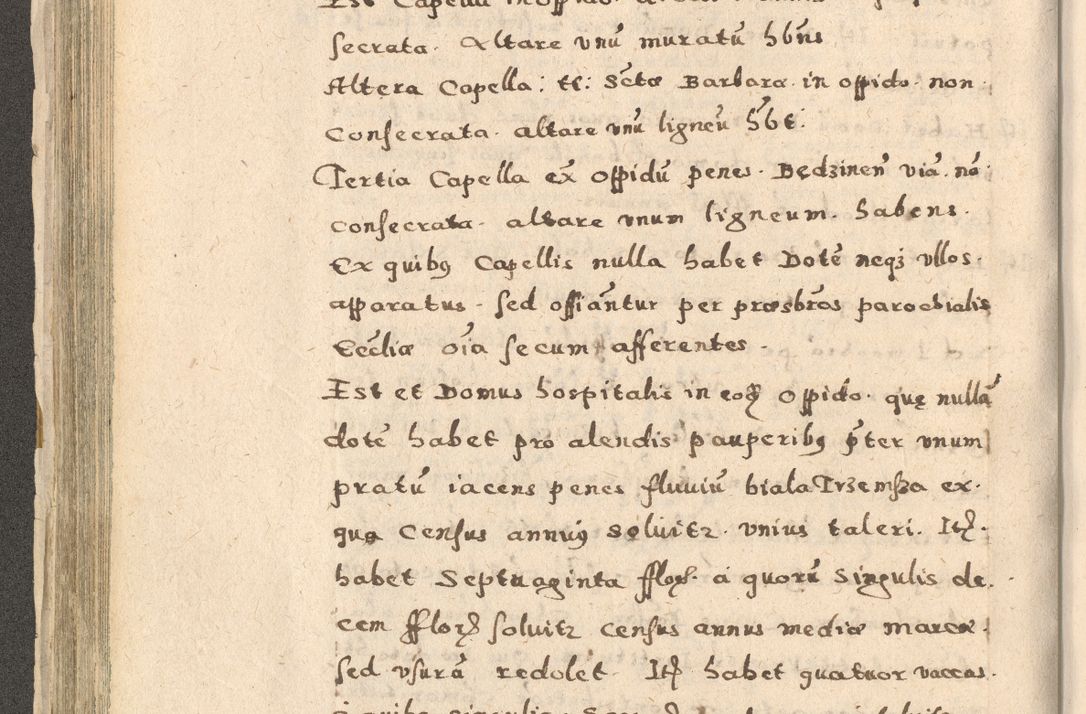 Est Capella in oppido
secrata. Altare vnū muratū hb̄ns
Altera Capella: tt: Sc̄tæ Barbaræ in oppido non
Consecrata. altare vnū ligneū h̄bt.
Tertia Capella ex oppidū penes. Będzinen̄ viā. nō
consecrata. altare vnum ligneum. habens.
Ex quibꝰ Capellis nulla habet Dotē neqȝ vllos.
apparatus. sed offiāntur per præsbr̄os parochialis
Eccl̄iæ oīa secum afferentes.
Est et Domus hospitalis in eodē oppido. quę nullā
dotē habet pro alendis pauperibꝰ p̄ter vnum
pratū iacens penes fluuiū biala Trzemsza ex.
qua Census annuꝰ soluitr. vnius taleri. Itē.
habet Septuaginta fflor. a quorū singulis de.
cem fflor soluitr census annus mediæ marcæ.
sed vsurā redolet. Itē habet quatuor vaccas.